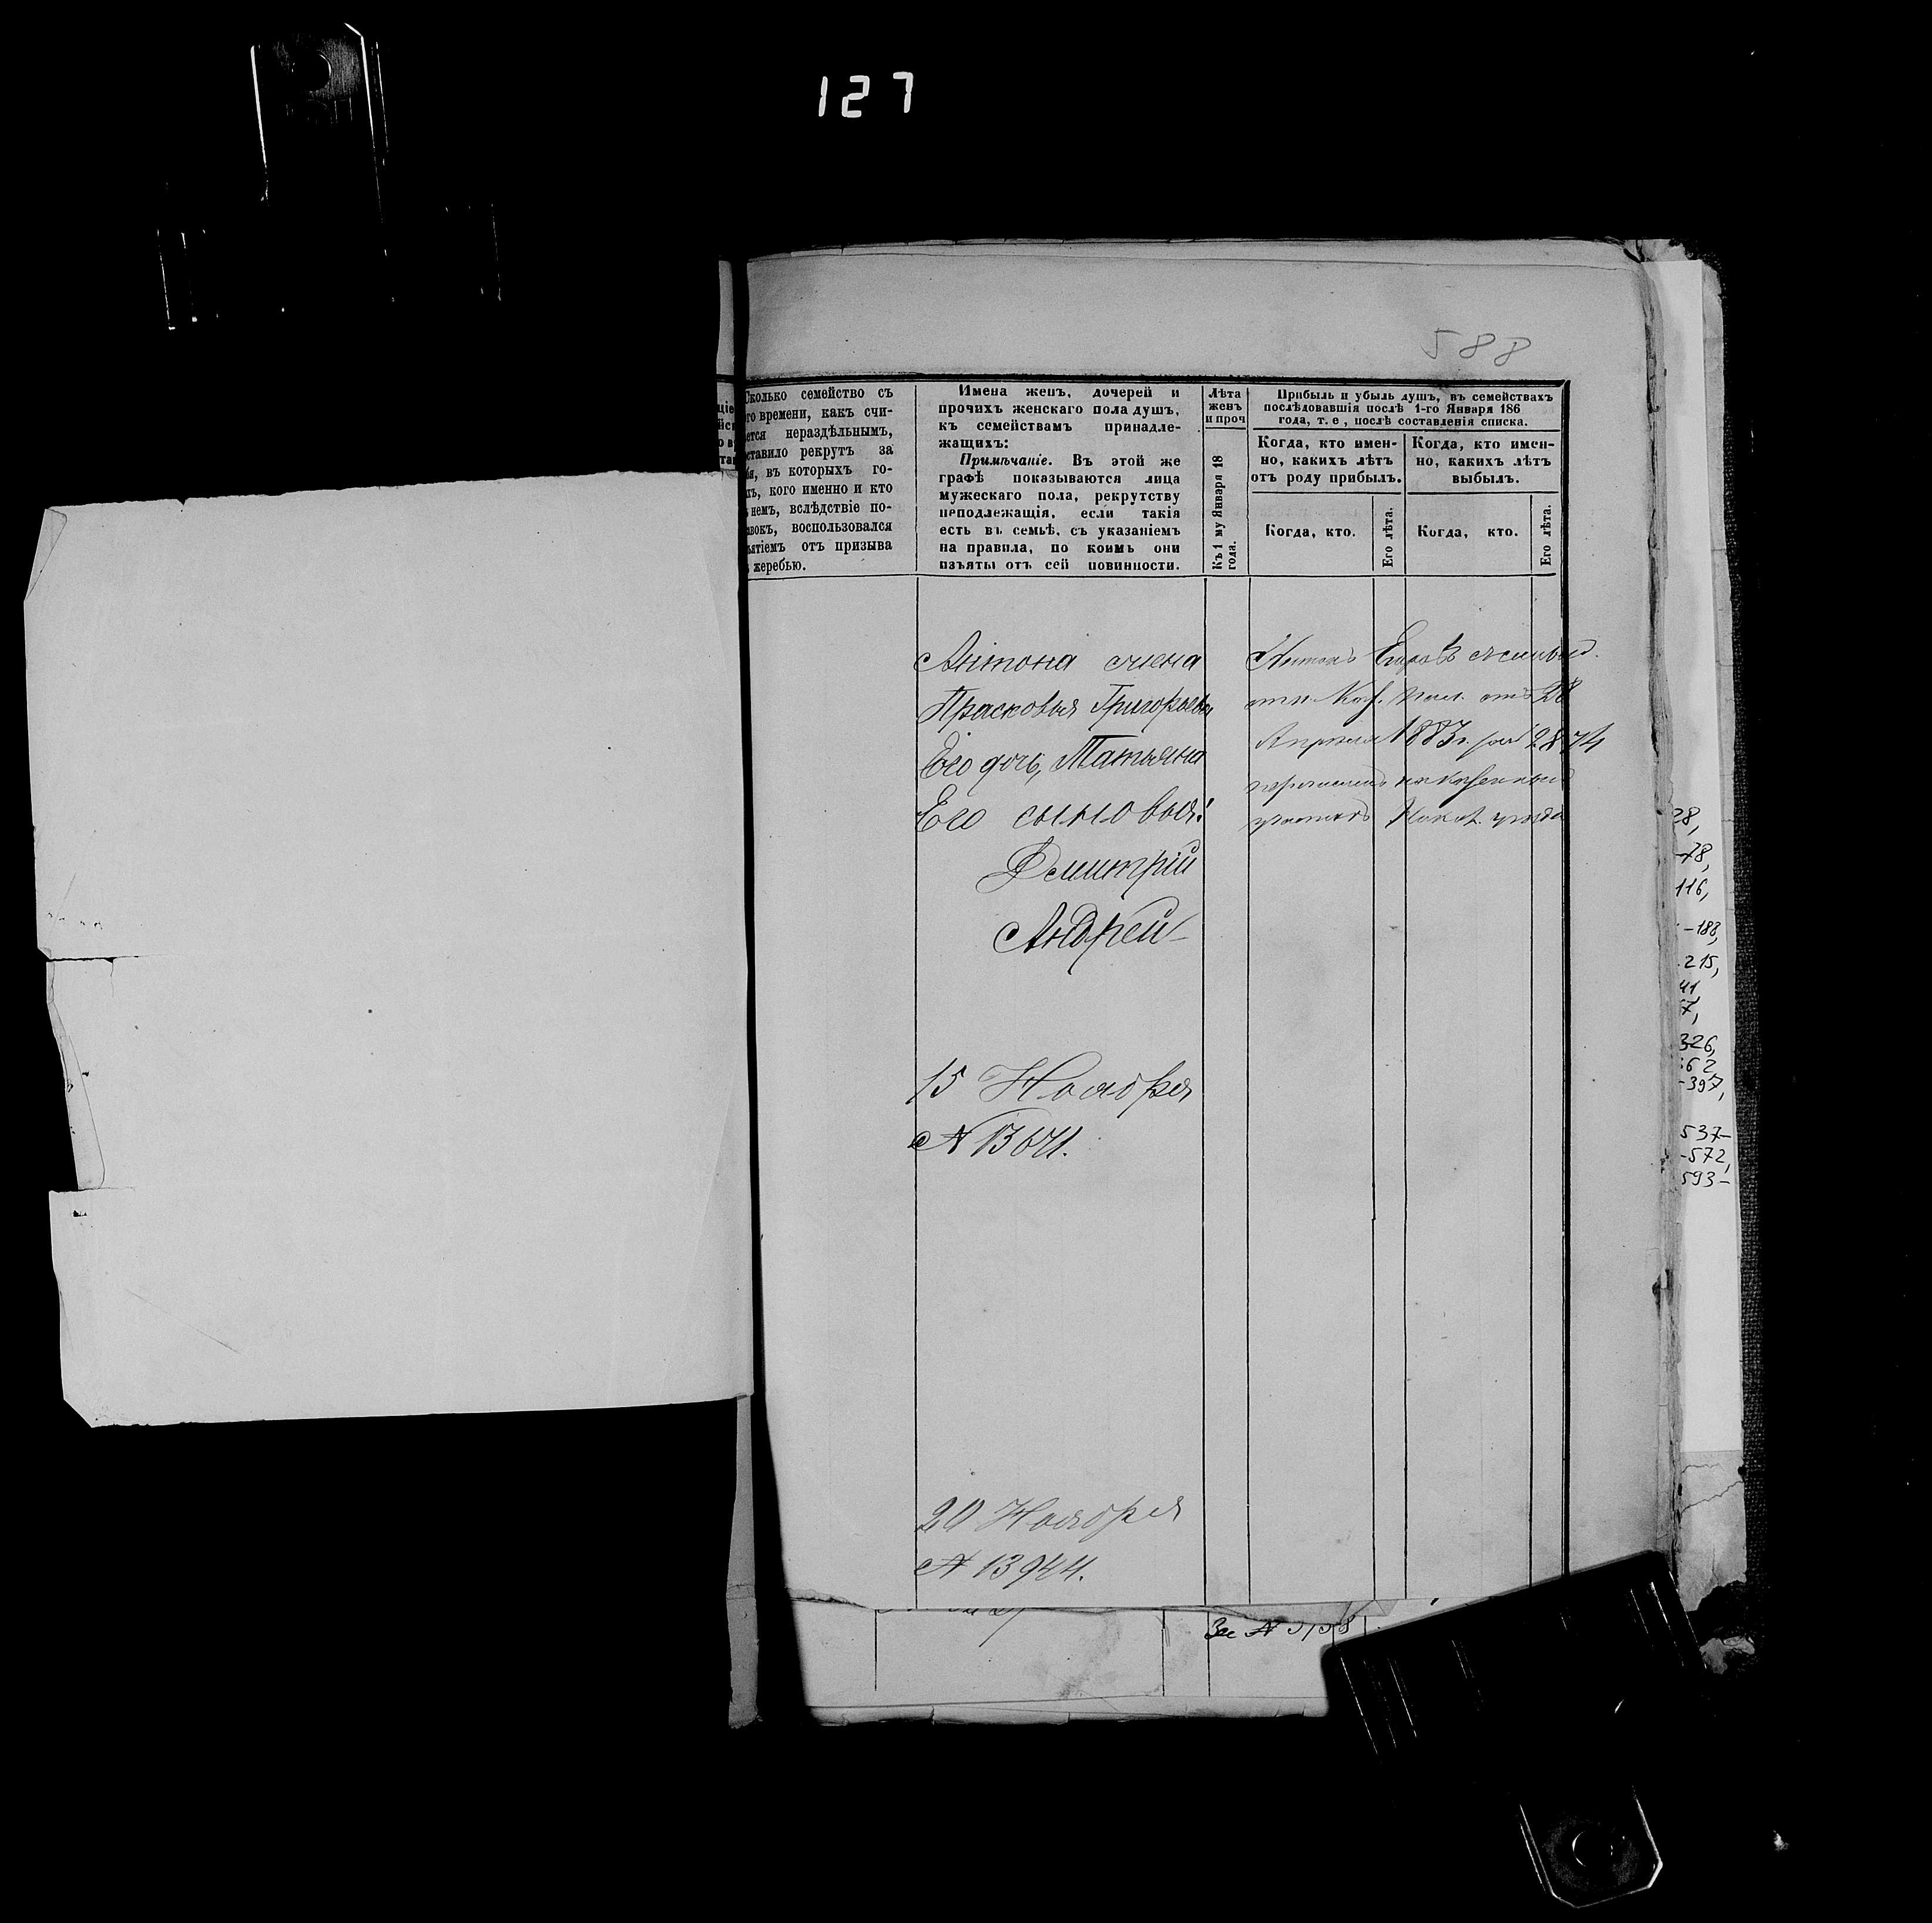 127
588
Сколько семейство съ
го времени, какъ счи-
ется нераздѣльнымъ,
ставило рекрутъ за
въ которыхъ го-
кого именно и кто
немъ, вслѣдствіе по-
воспользовался
ятіемъ отъ призыва
жеребью.
Имена женъ, дочерей и
прочихъ женскаго пола душъ,
къ семействамъ принадле-
жащихъ:
Примѣчаніе. Въ этой же
графѣ показываются лица
мужескаго пола, рекрутству
неподлежащія, если такія
есть въ семьѣ, съ указаніемъ
на правила, по коимъ они
изъяты отъ сей повинности.
Лѣта
женъ
и проч
Къ 1 му Января 18
года.
Прибыль и убыль душъ, въ семействахъ
послѣдовавшія послѣ 1-го Января 186
года, т. е., послѣ составленія списка.
Когда, кто имен-
но, какихъ лѣтъ
отъ роду прибылъ.
Когда, кто имен-
но, какихъ лѣтъ
выбылъ.
Когда, кто.
Его лѣта.
Когда, кто.
Его лѣта.
Антона жена
Прасковья Григорьева
Его дочь, Татьяна
Его сыновья:
Дмитрій
Андрей
15 Ноября
20 Ноября
№ 13944.
Антонъ Егоровъ
отъ 28
Апрѣля 1883 г. 2874
уѣзда
28,
-78,
116,
-188,
215,
41
57,
326,
362
-397,
537-
-572,
593-
За №